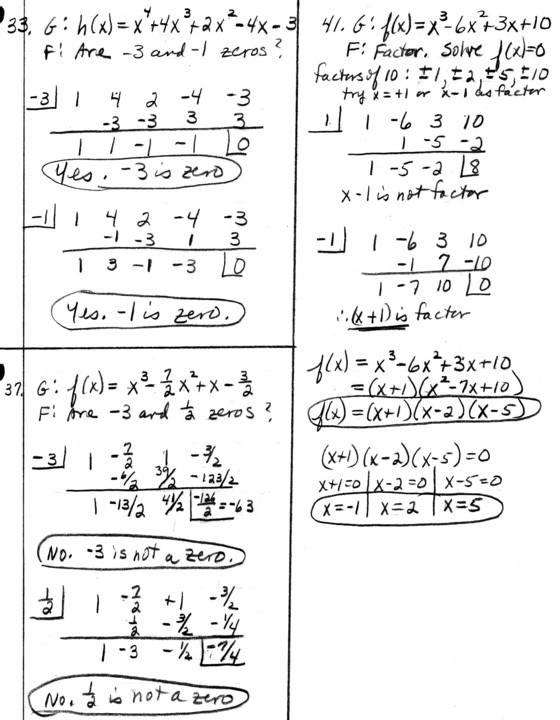 33. G: h(x) = x⁴+4x³+2x²-4x-3
F: Are -3 and -1 zeros?
-3| 1 4 2 -4 -3
-3 -3 3 3
1 1 -1 -1 |0
Yes. -3 is zero
-1| 1 4 2 -4 -3
-1 -3 1 3
1 3 -1 -3 |0
Yes. -1 is zero.
37. G: f(x) = x³ - 7/2 x² + x - 3/2
F: Are -3 and 1/2 zeros?
-3| 1 -7/2 1 -3/2
-6/2 39/2 -123/2
1 -13/2 41/2 |-126/2 = -63
No. -3 is not a zero.
1/2| 1 -7/2 +1 -3/2
1/2 -3/2 -1/4
1 -3 -1/2 |-7/4
No. 1/2 is not a zero
41. G: f(x) = x³-6x²+3x+10
F: Factor. Solve f(x)=0
factors of 10: ±1, ±2, ±5, ±10
try x=+1 or x-1 as factor
1| 1 -6 3 10
1 -5 -2
1 -5 -2 |8
x-1 is not factor
-1| 1 -6 3 10
-1 7 -10
1 -7 10 |0
∴ (x+1) is factor
f(x) = x³-6x²+3x+10
= (x+1)(x²-7x+10)
f(x) = (x+1)(x-2)(x-5)
(x+1)(x-2)(x-5)=0
x+1=0 | x-2=0 | x-5=0
x=-1 | x=2 | x=5